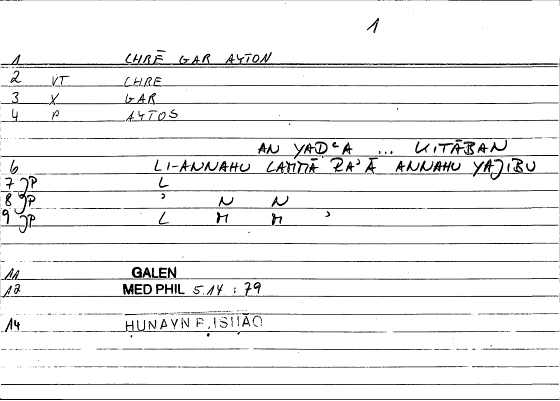 1
1 CHRĒ GAR AYTON
2 VT CHRE
3 X GAR
4 P AYTOS
AN YADᶜA ... KITĀBAN
6 LI-ANNAHU LAMMĀ RAʾĀ ANNAHU YAJIBU
7 JP L
8 JP ʾ N N
9 JP L M M ʾ
11 GALEN
12 MED PHIL 5.14 : 79
14 ḤUNAYN B. ISḤĀQ